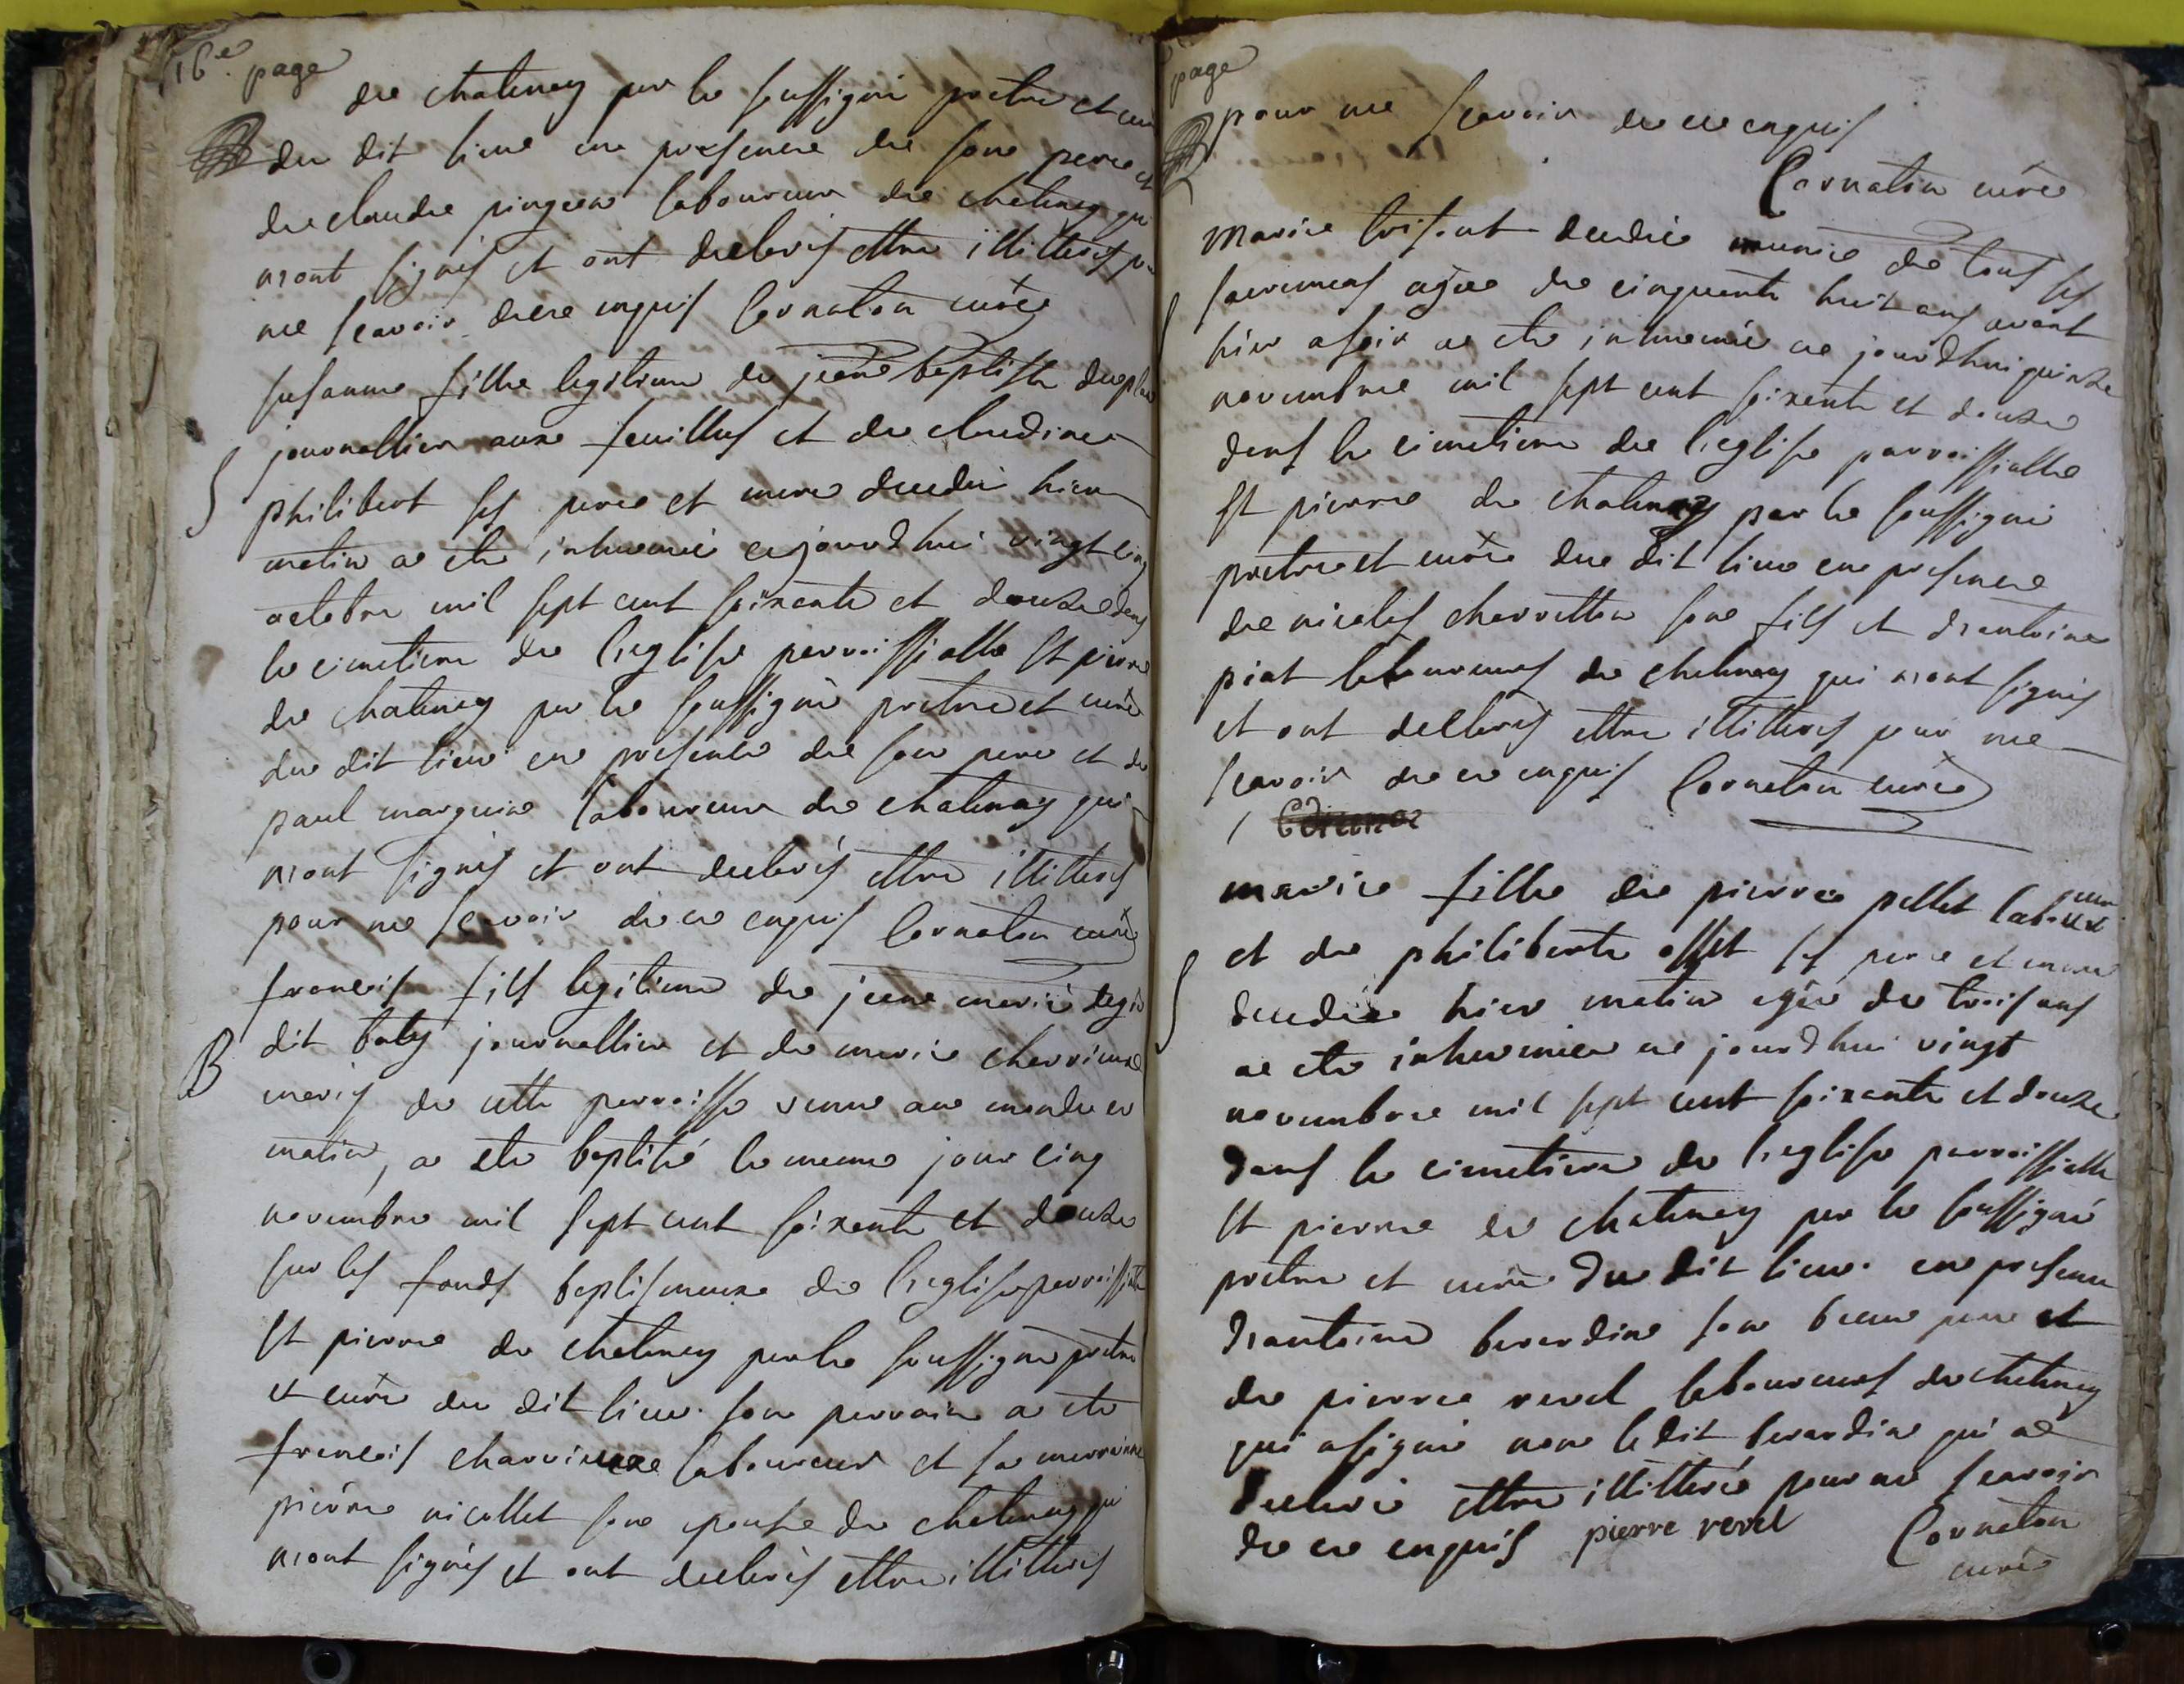 16e page
de chatenay par le soussigné pretre et curé
du dit lieu en presence de son pere et
de claude pingeon laboureur de chatenay qui
n'ont signés et ont declarés ettre illitterés pr
ne scavoir de ce enquis Cornaton curé
susanne fille legitime de jean baptiste duplan
journallier aux feuilles et de claudine
S
philibert ses pere et mere decedée hier
matin a ete inhumé cejourdhui vingt cinq
octobre mil sept cent soixante et douze dans
le cimetiere de l'eglise parroissialle st pierre
de chatenay par le soussigné pretre et curé
du dit lieu en presence de son pere et de
paul marguin laboureur de chatenay qui
n'ont signés et ont declarés ettre illitterés
pour ne scavoir de ce enquis Cornaton curé
francois fils legitime de jean marie
dit baty journallier et de marie charvieux
B
mariés de cette parroisse venu au monde ce
matin, a ete baptisé le meme jour cinq
novembre mil sept cent soixante et douze
sur les fonds baptismaux de l'eglise parroissialle
st pierre de chatenay par le soussigné pretre
et curé du dit lieu. son parrain a ete
francois charvieux laboureur et sa marraine
pierre nicollet son epouse de chatenay qui
n'ont signés et ont declarés ettre illitterés
page
pour ne scavoir de ce enquis
Cornaton curé
marie decedée munie de tous ses
sacremens agée de cinquante huit ans avant
hier a soir a ete inhumée ce jourdhui quinze
novembre mil sept cent soixante et douze
dans le cimetiere de l'eglise parroissialle
st pierre de chatenay par le soussigné
pretre et curé du dit lieu en presence
de nicolas charretton son fils et d'antoine
piat laboureurs de chatenay qui n'ont signés
et ont declarés ettre illitterés pour ne
scavoir de ce enquis Cornaton curé
marie fille de pierre pellet laboureur
et de philiberte ses pere et mere
S
decedée hier matin agée de trois ans
a ete inhumée ce jourdhui vingt
novembre mil sept cent soixante et douze
dans le cimetiere de l'eglise parroissialle
st pierre de chatenay par le soussigné
pretre et curé du dit lieu. en presence
d'antoine berardin son beau pere et
de pierre revel laboureurs de chatenay
qui a signé non le dit berardin qui a
declaré ettre illitteré pour ne scavoir
de ce enquis pierre revel Cornaton
curé